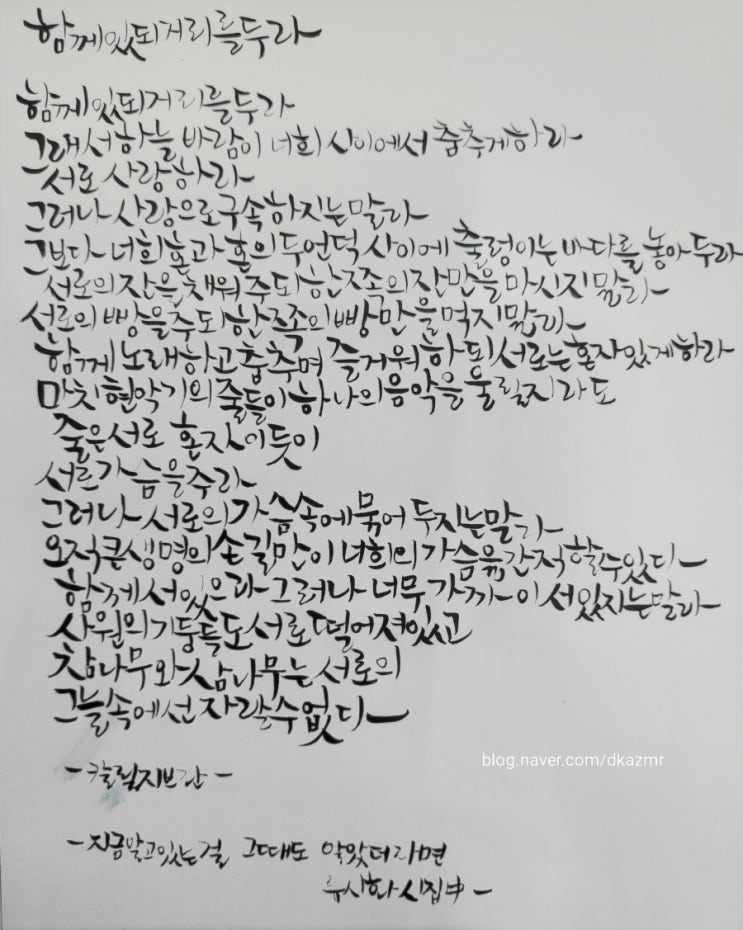 함께있되거리를두라
함께있되거리를두라
그래서하늘 바람이 너희 사이에서 춤추게하라
서로 사랑하라
그러나 사랑으로구속하지는말라
그보다 너희혼과 혼의 두언덕 사이에 출렁이는 바다를 놓아 두라
서로의 잔을 채워 주되 한쪽의 잔만을 마시지 말라
서로의 빵을 주되 한쪽의 빵만을 먹지 말라
함께 노래하고 춤추며 즐거워하되 서로는 혼자있게하라
마치 현악기의 줄들이 하나의 음악을 울릴지라도
줄은 서로 혼자이듯이
서로 가슴을 주라
그러나 서로의 가슴속에 묶어 두지는말라
오직큰생명의 손길만이 너희의 가슴을 간직할수있다
함께 서있으라 그러나 너무 가까이 서있지는말라
사원의 기둥들도 서로 떨어져있고
참나무와 삼나무는 서로의
그늘속에선 자랄수없다
- 칼릴지브란 -
blog.naver.com/dkazmr
- 지금알고있는걸 그때도 알았더라면
류시화 시집中 -